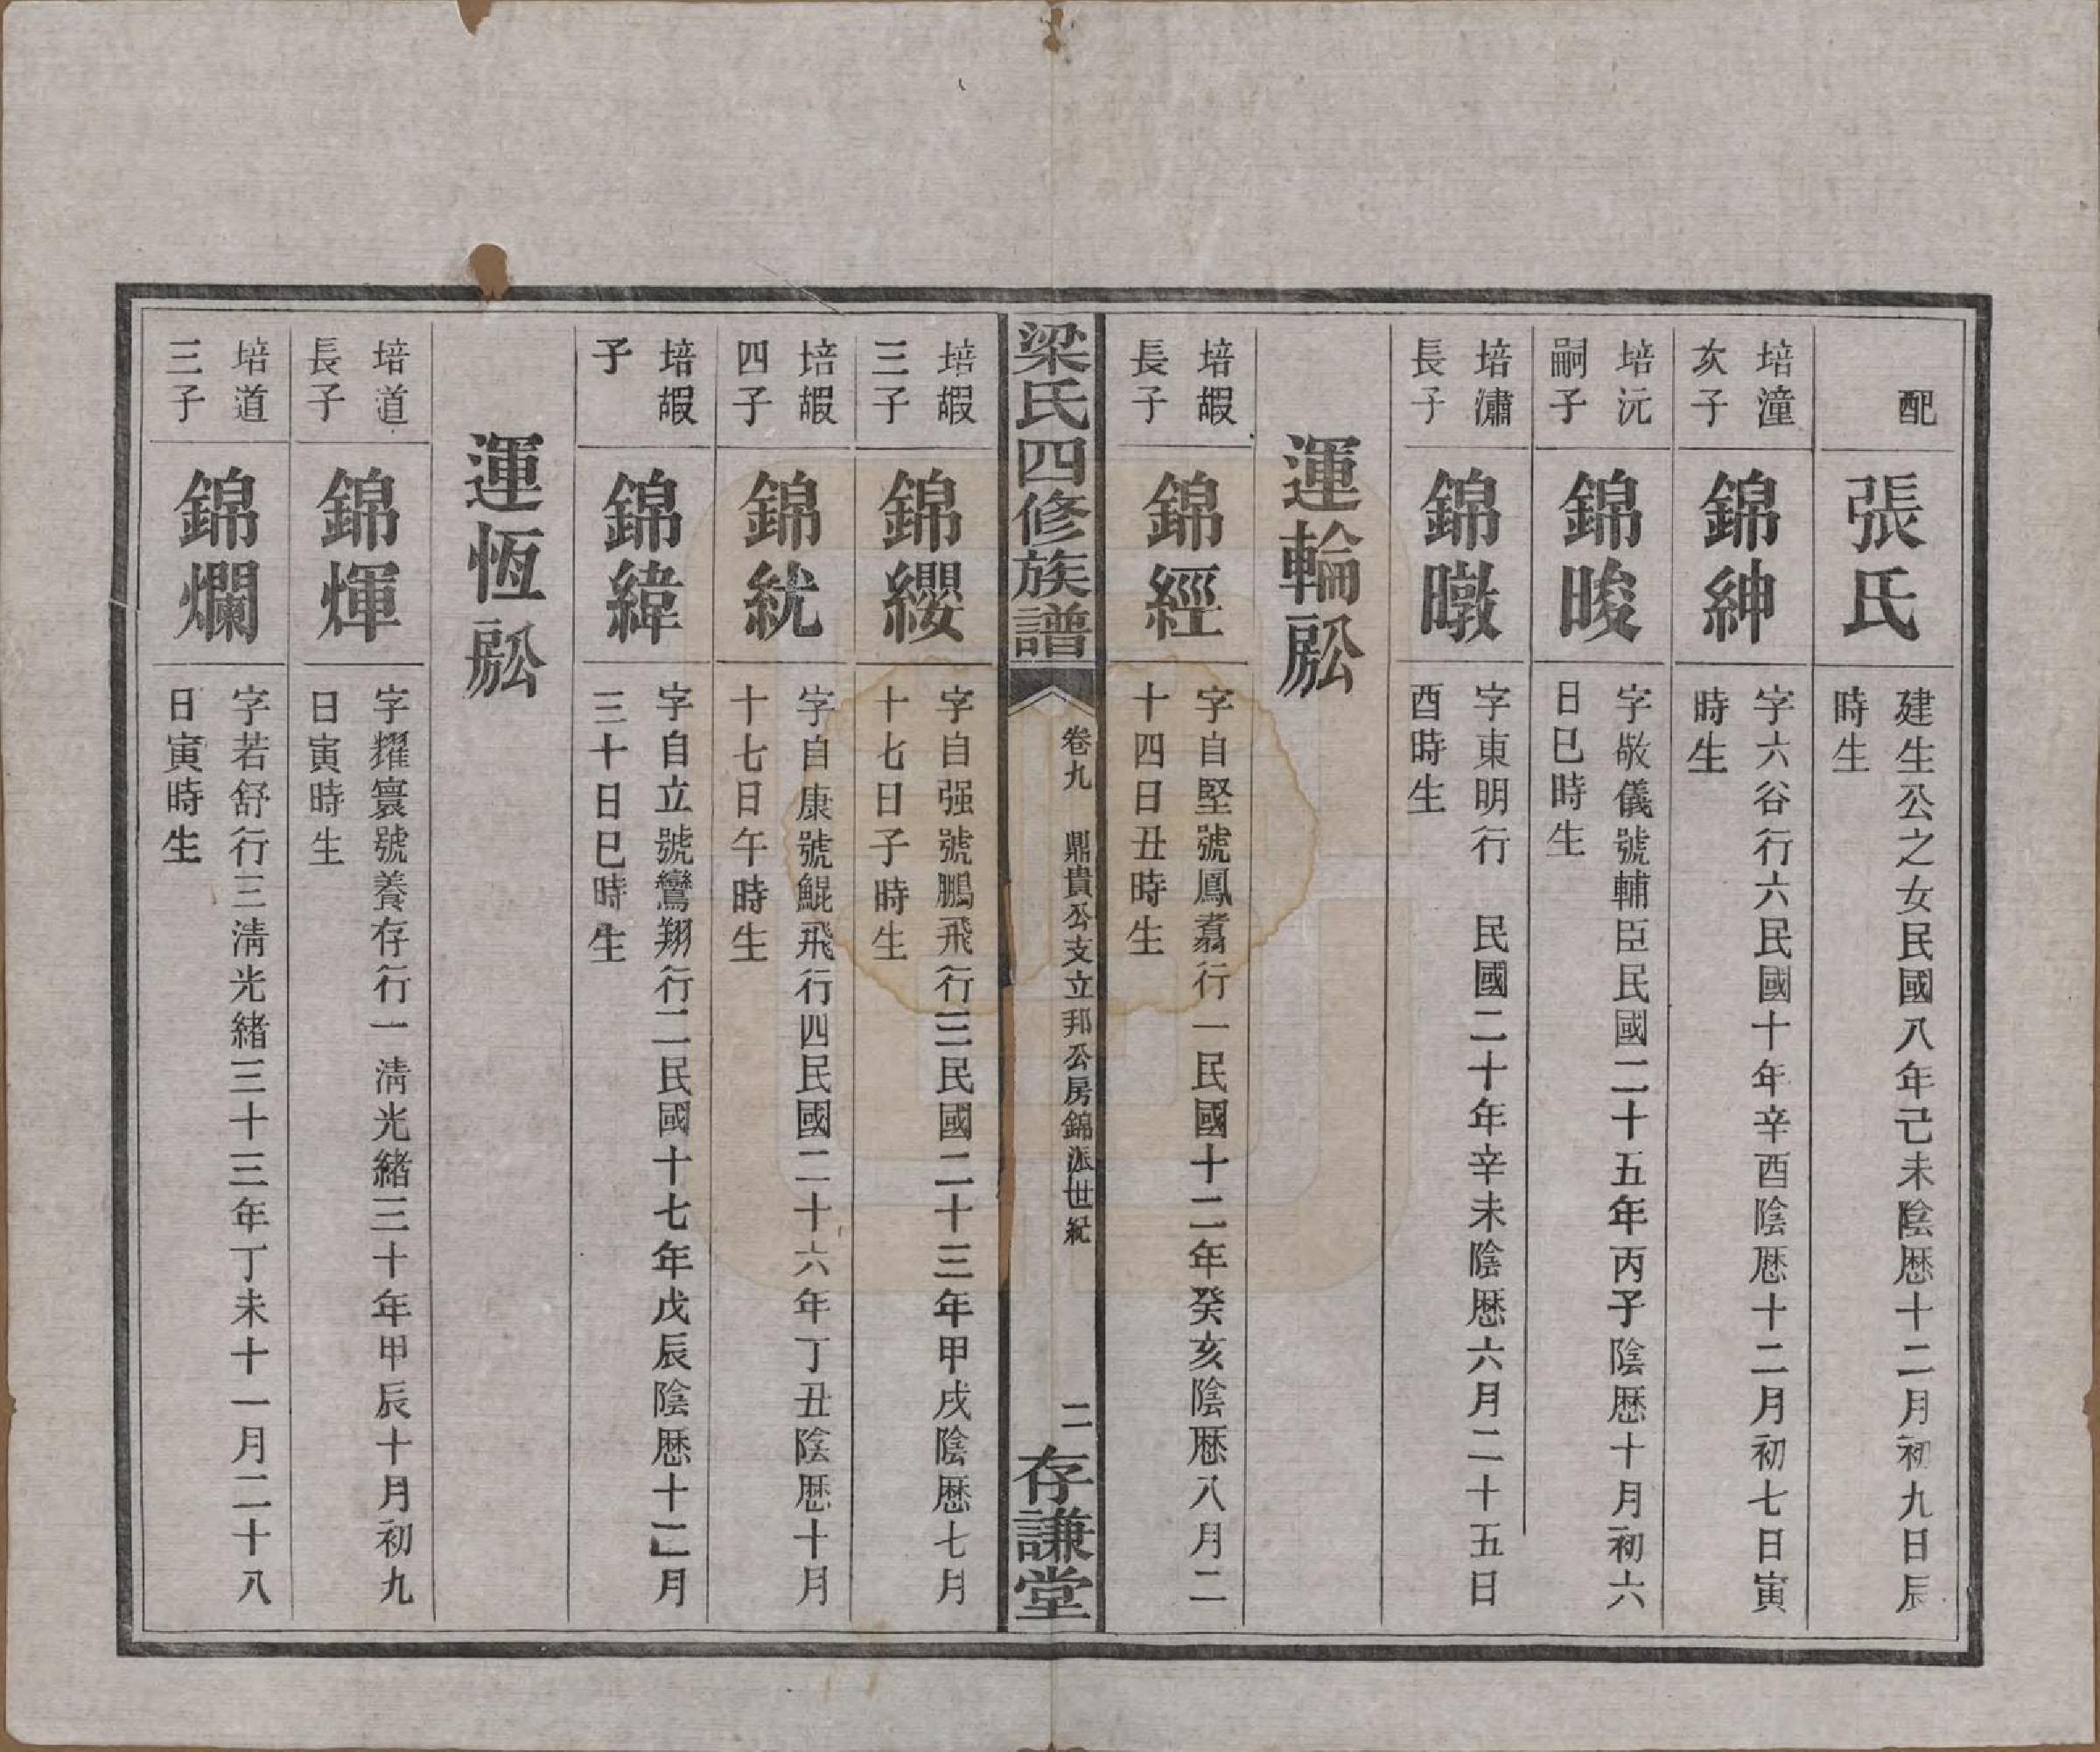 配
張氏
建生公之女民國八年己未陰歷十二月初九日辰
時生
培潼
次子
錦紳
字六谷行六民國十年辛酉陰歷十二月初七日寅
時生
培沅
嗣子
錦晙
字敬儀號輔臣民國二十五年丙子陰歷十月初六
日巳時生
培潚
長子
錦暾
字東明行　民國二十年辛未陰歷六月二十五日
酉時生
運輪㕬
培嘏
長子
錦經
字自堅號鳳翥行一民國十二年癸亥陰歷八月二
十四日丑時生
梁氏四修族譜
卷九
鼎貴公支立邦公房錦派世紀
二
存謙堂
培嘏
三子
錦纓
字自强號鵬飛行三民國二十三年甲戌陰歷七月
十七日子時生
培嘏
四子
錦紞
字自康號鯤飛行四民國二十六年丁丑陰歷十月
十七日午時生
培嘏
子
錦緯
字自立號鸞翔行二民國十七年戊辰陰歷十二月
三十日巳時生
運恆㕬
培道
長子
錦煇
字耀寰號養存行一淸光緒三十年甲辰十月初九
日寅時生
培道
三子
錦爛
字若舒行三淸光緒三十三年丁未十一月二十八
日寅時生